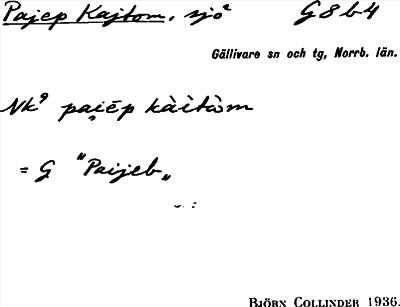 Pajep Kajtom, sjö² G8b4
Gällivare sn och tg, Norrb. län.
Nk⁹ pai̯ēp kàìtòm
= G "Paijeb„
BJÖRN COLLINDER 1936.